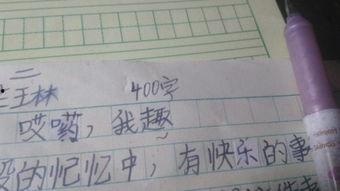 二
王林 400字
哎药，我趣
的记忆中，有快乐的事